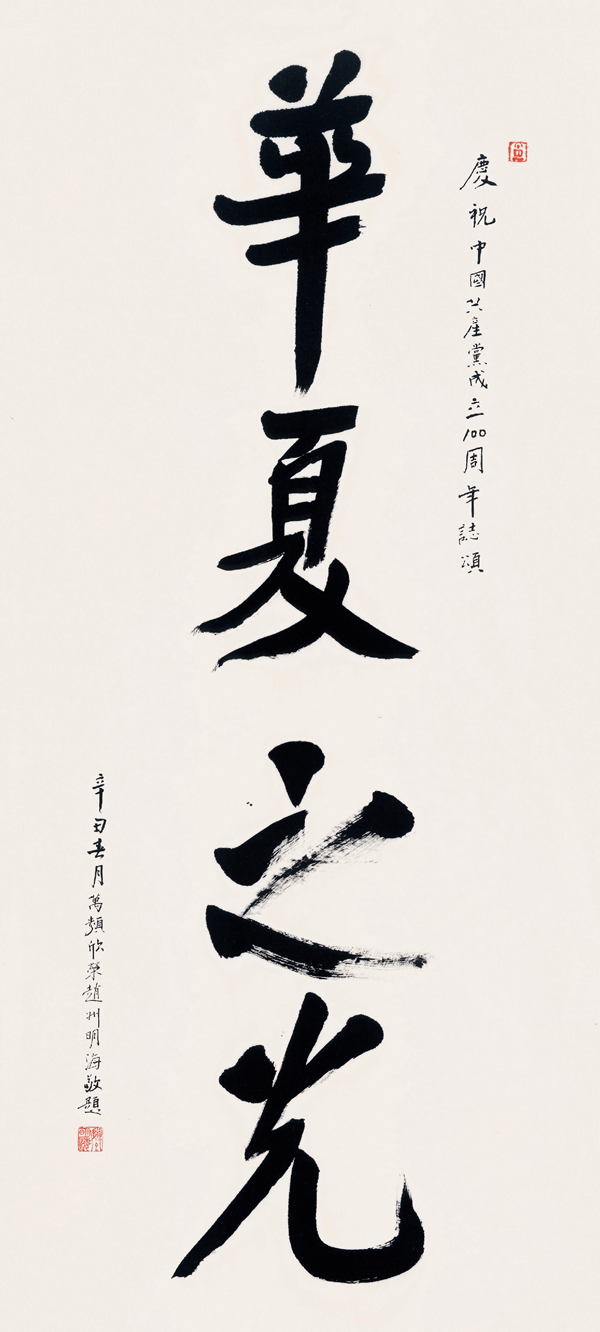 慶祝中國共產黨成立100周年誌頌
華夏之光
辛丑春月萬類欣榮趙州明海敬題